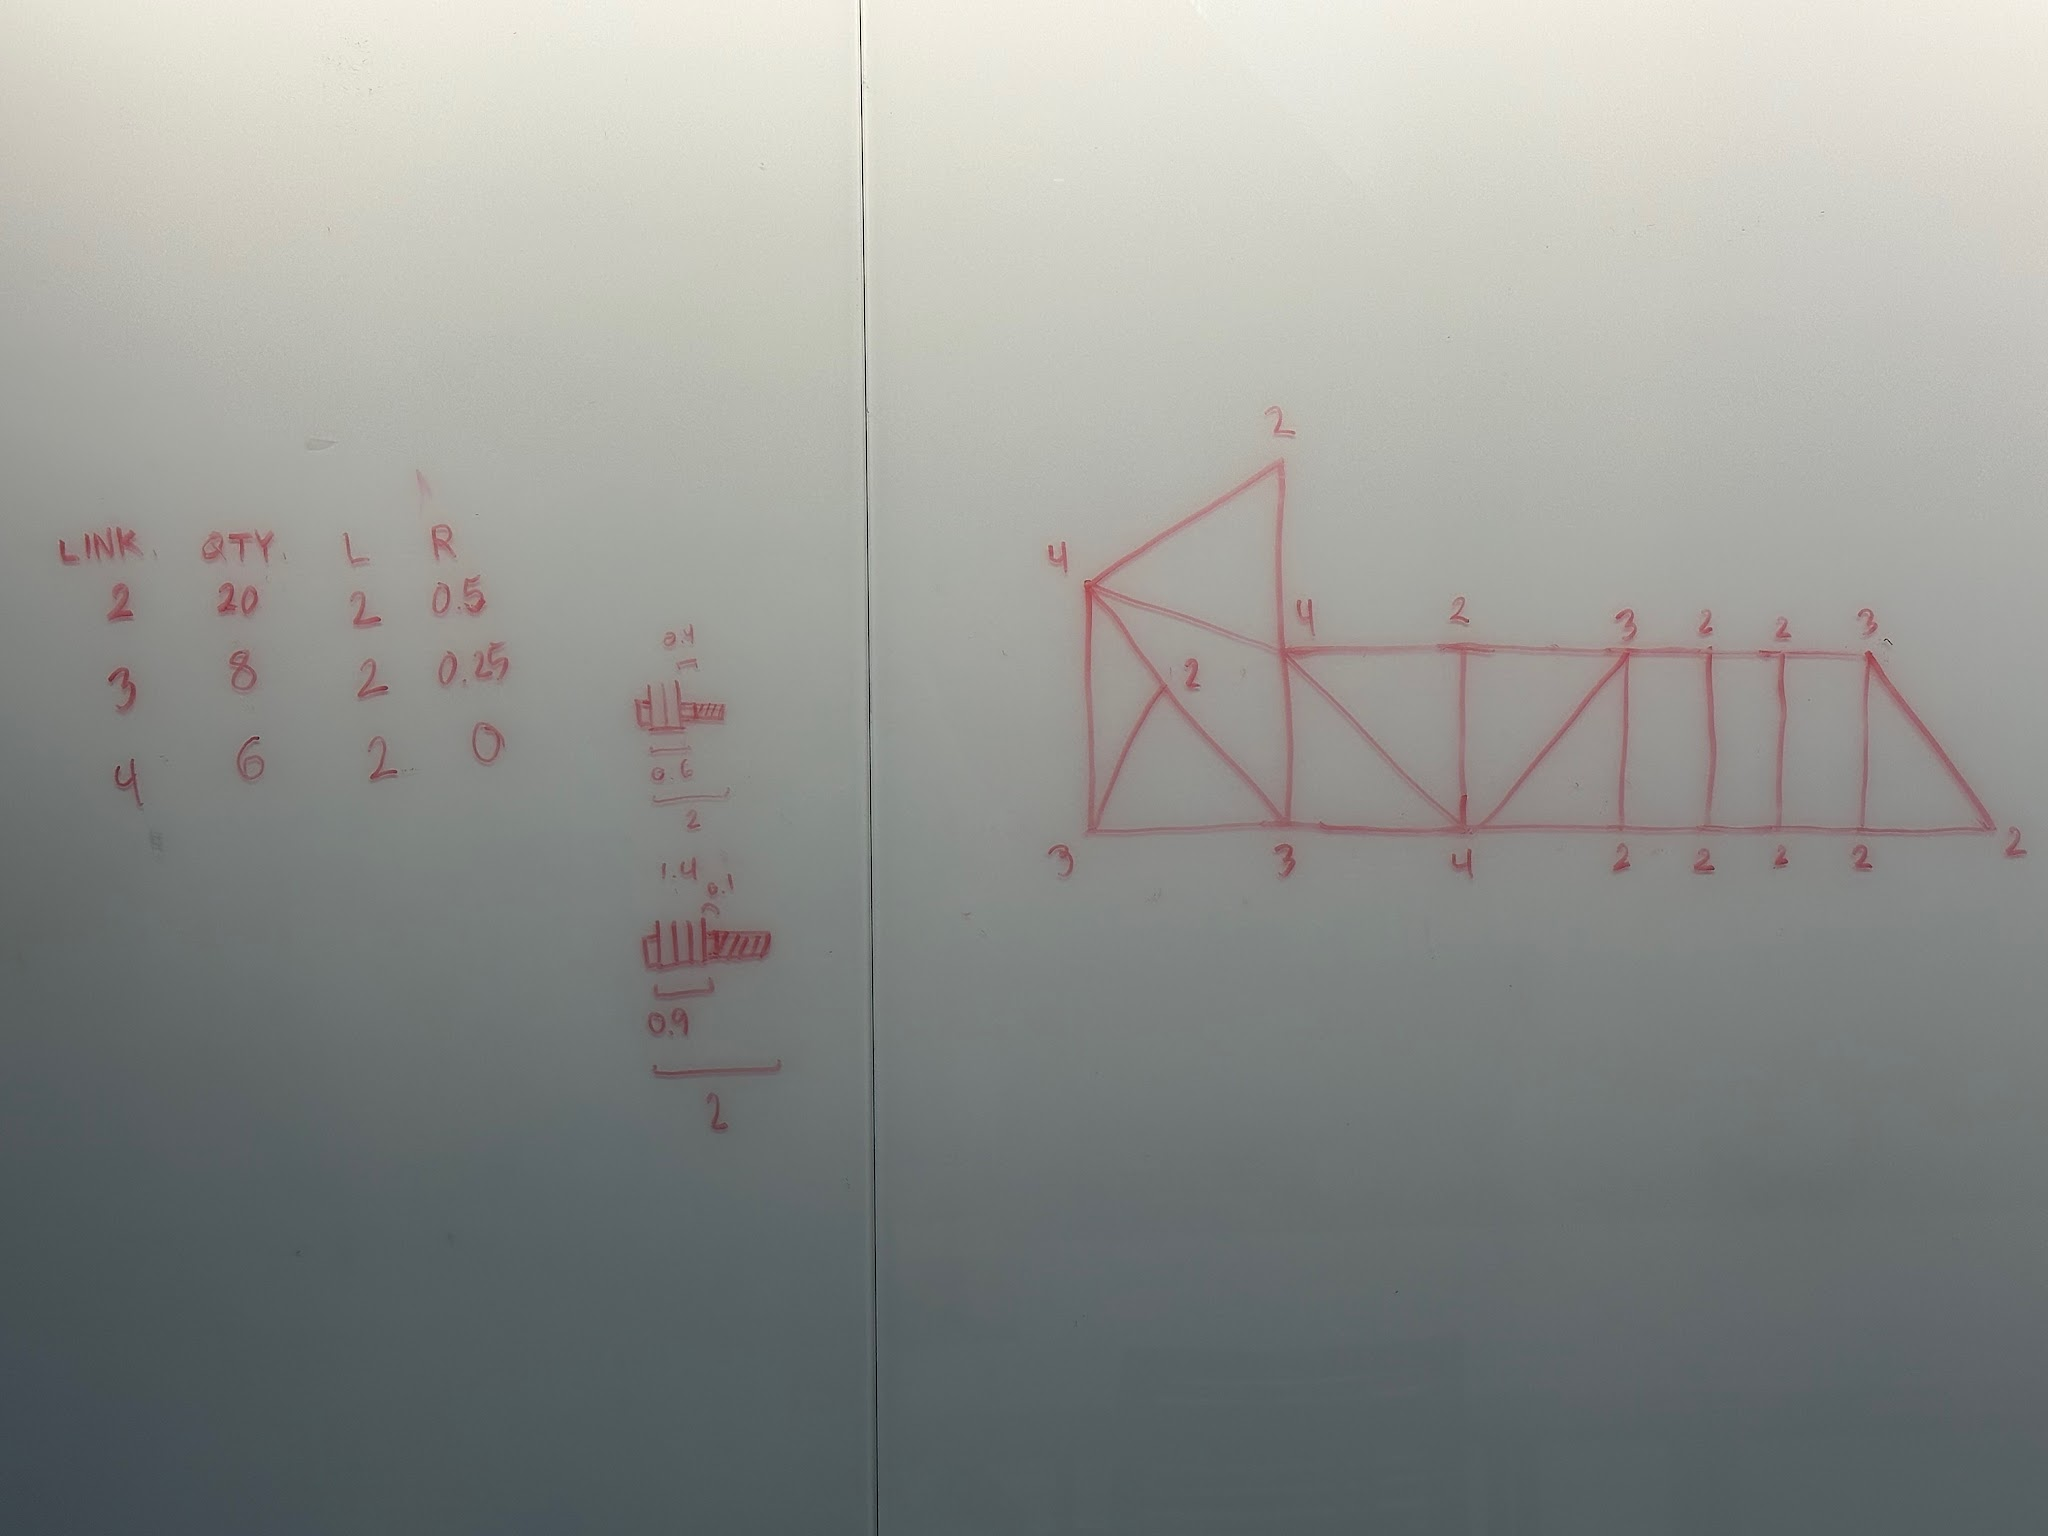 LINK. QTY. L R
2 20 2 0.5
3 8 2 0.25
4 6 2 0
0.6
2
1.4
0.1
0.9
2
2
4
4 2 3 2 2 3
2
3 3 4 2 2 2 2 2